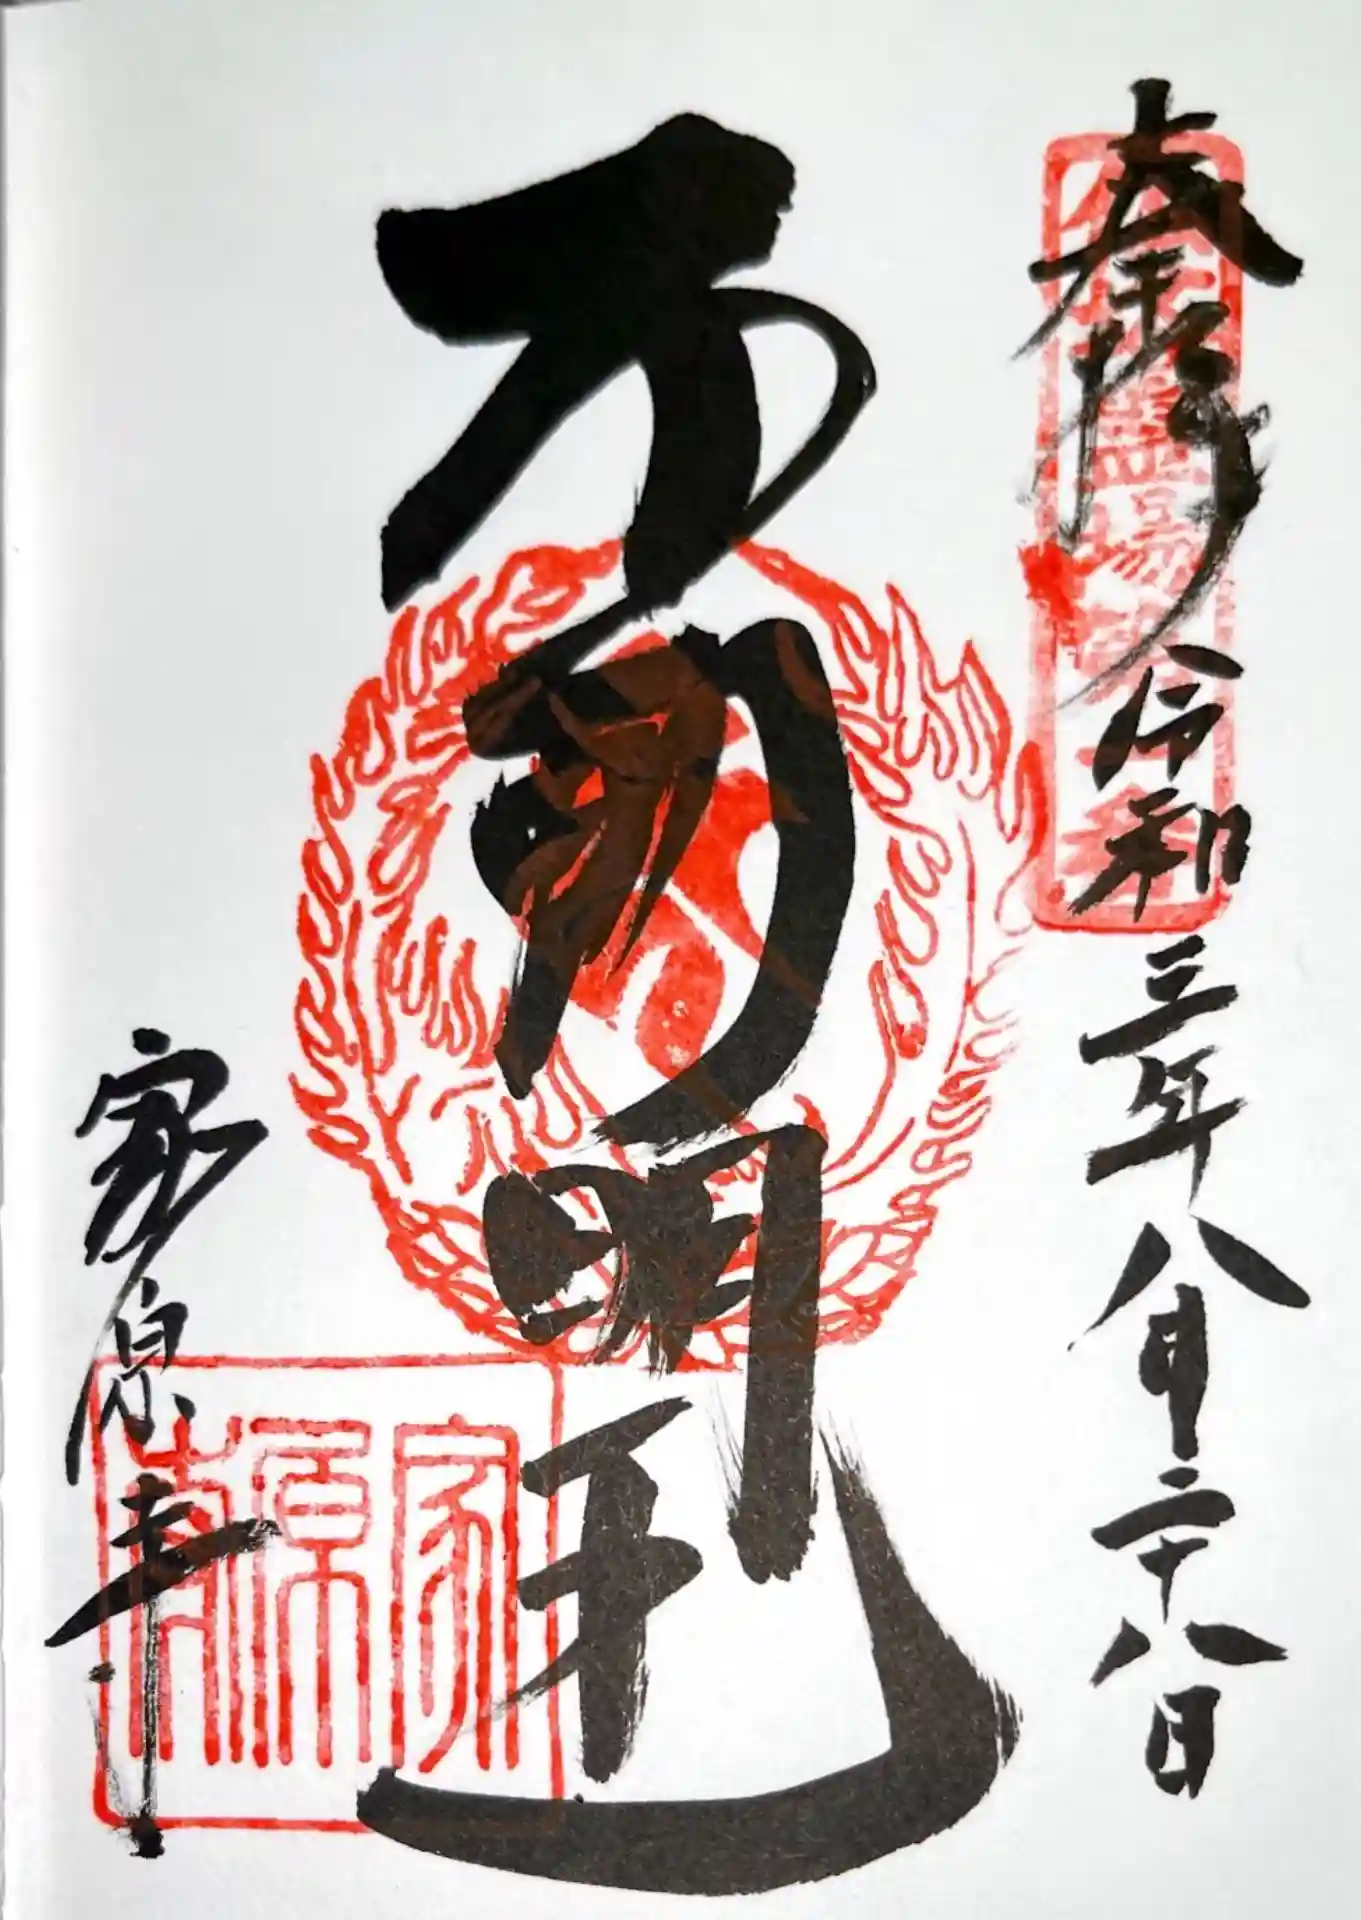 奉拝 令和三年八月二十八日
不動明王
家原寺
家原寺